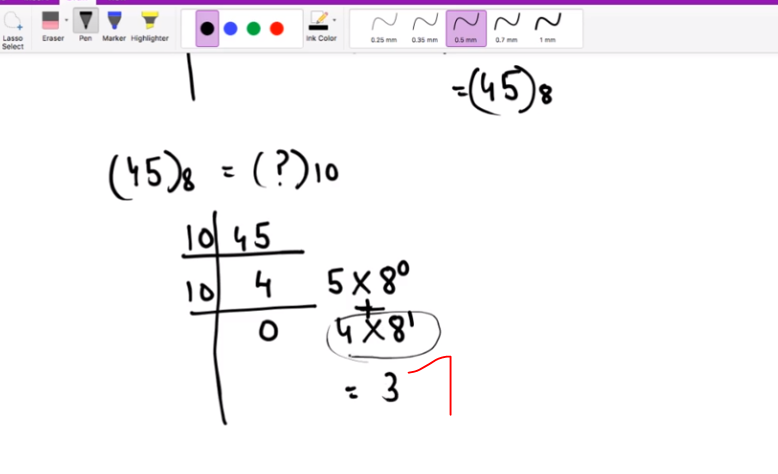 Lasso Select Eraser Pen Marker Highlighter Ink Color 0.25 mm 0.35 mm 0.5 mm 0.7 mm 1 mm
=(45)8
(45)8 = (?)10
10 45
10 4 5 X 8⁰
+
0 4 X 8¹
= 3